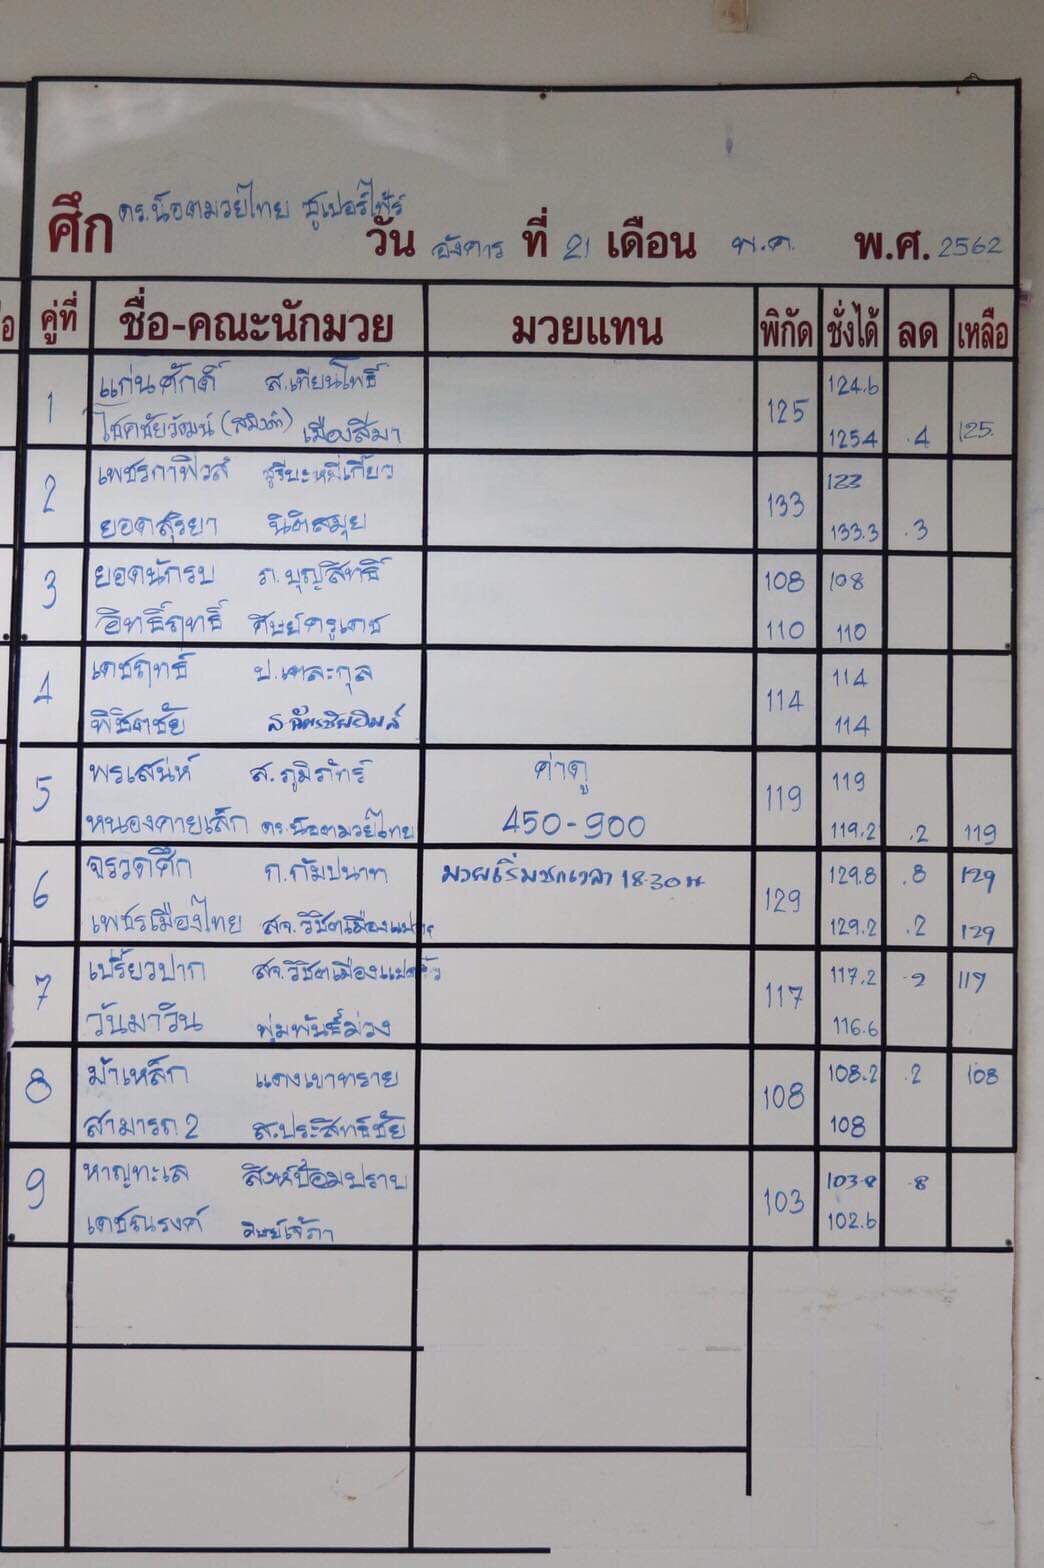 ศึก ดร.น๊อตมวยไทย ซูเปอร์ไฟ้ร์
วัน อังคาร ที่ 21 เดือน พ.ค. พ.ศ. 2562
คู่ที่ ชื่อ-คณะนักมวย มวยแทน พิกัด ชั่งได้ ลด เหลือ
1 แก่นศักดิ์ ส.เทียนโพธิ์ 125 124.6
โชคชัยวัฒน์ เมืองสีมา 125.4 .4 125
2 เพชรกาฬวส์ สุริยะหมี่เกี๊ยว 133 133
ยอดสุริยา นิติสมุย 133.3 .3
3 ยอดนักรบ ภ.บุญสิทธิ์ 108 108
อิทธิ์ฤทธิ์ ศิษย์ครูเดช 110 110
4 เดชฤทธิ์ ป.เตละกุล 114 114
พิชิตชัย 114
5 พรเสน่ห์ ส.ภูมิภัทร์ ค่าดู 119 119
หนองคายเล็ก ดร.น๊อตมวยไทย 450-900 119.2 .2 119
6 จรวดศึก ก.กัมปนาท มวยเริ่มชกเวลา 18.30น 129 129.8 .8 129
เพชรเมืองไทย สจ.วิชิตเมืองแปดริ้ว 129.2 .2 129
7 เปรี้ยวปาก สจ.วิชิตเมืองแปดริ้ว 117 117.2 .2 117
วันมาวิน พุ่มพันธ์ม่วง 116.6
8 ม้าเหล็ก แดงเขาทราย 108 108.2 .2 108
สามารถ 2 ส.ประสิทธิ์ชัย 108
9 หาญทะเล สิงห์ป้อมปราบ 103 103.8 .8
เดชณรงค์ ศิษย์เจ๊ภา 102.6